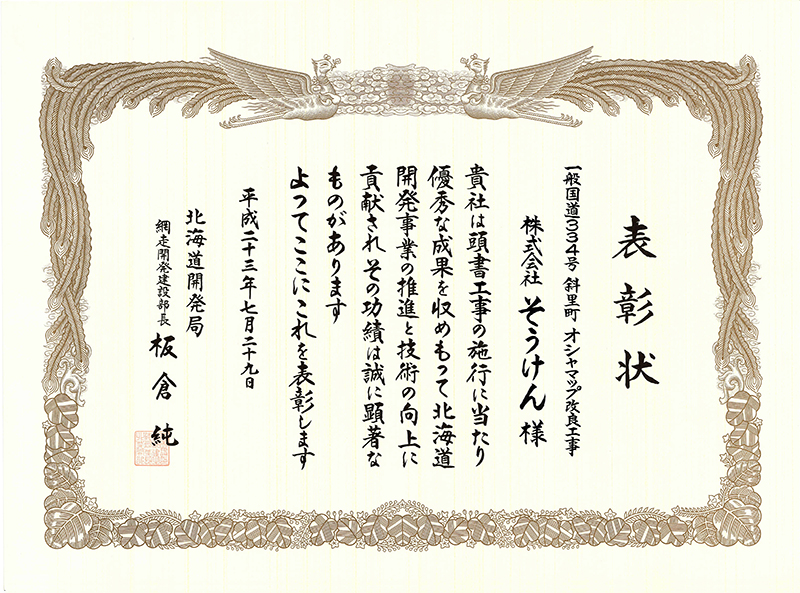 表彰状
一般国道334号 斜里町 オシャマップ改良工事
株式会社 そうけん 様
貴社は頭書工事の施行に当たり
優秀な成果を収めもって北海道
開発事業の推進と技術の向上に
貢献されその功績は誠に顕著な
ものがあります
よってここにこれを表彰します
平成二十三年七月二十九日
北海道開発局
網走開発建設部長 板倉 純